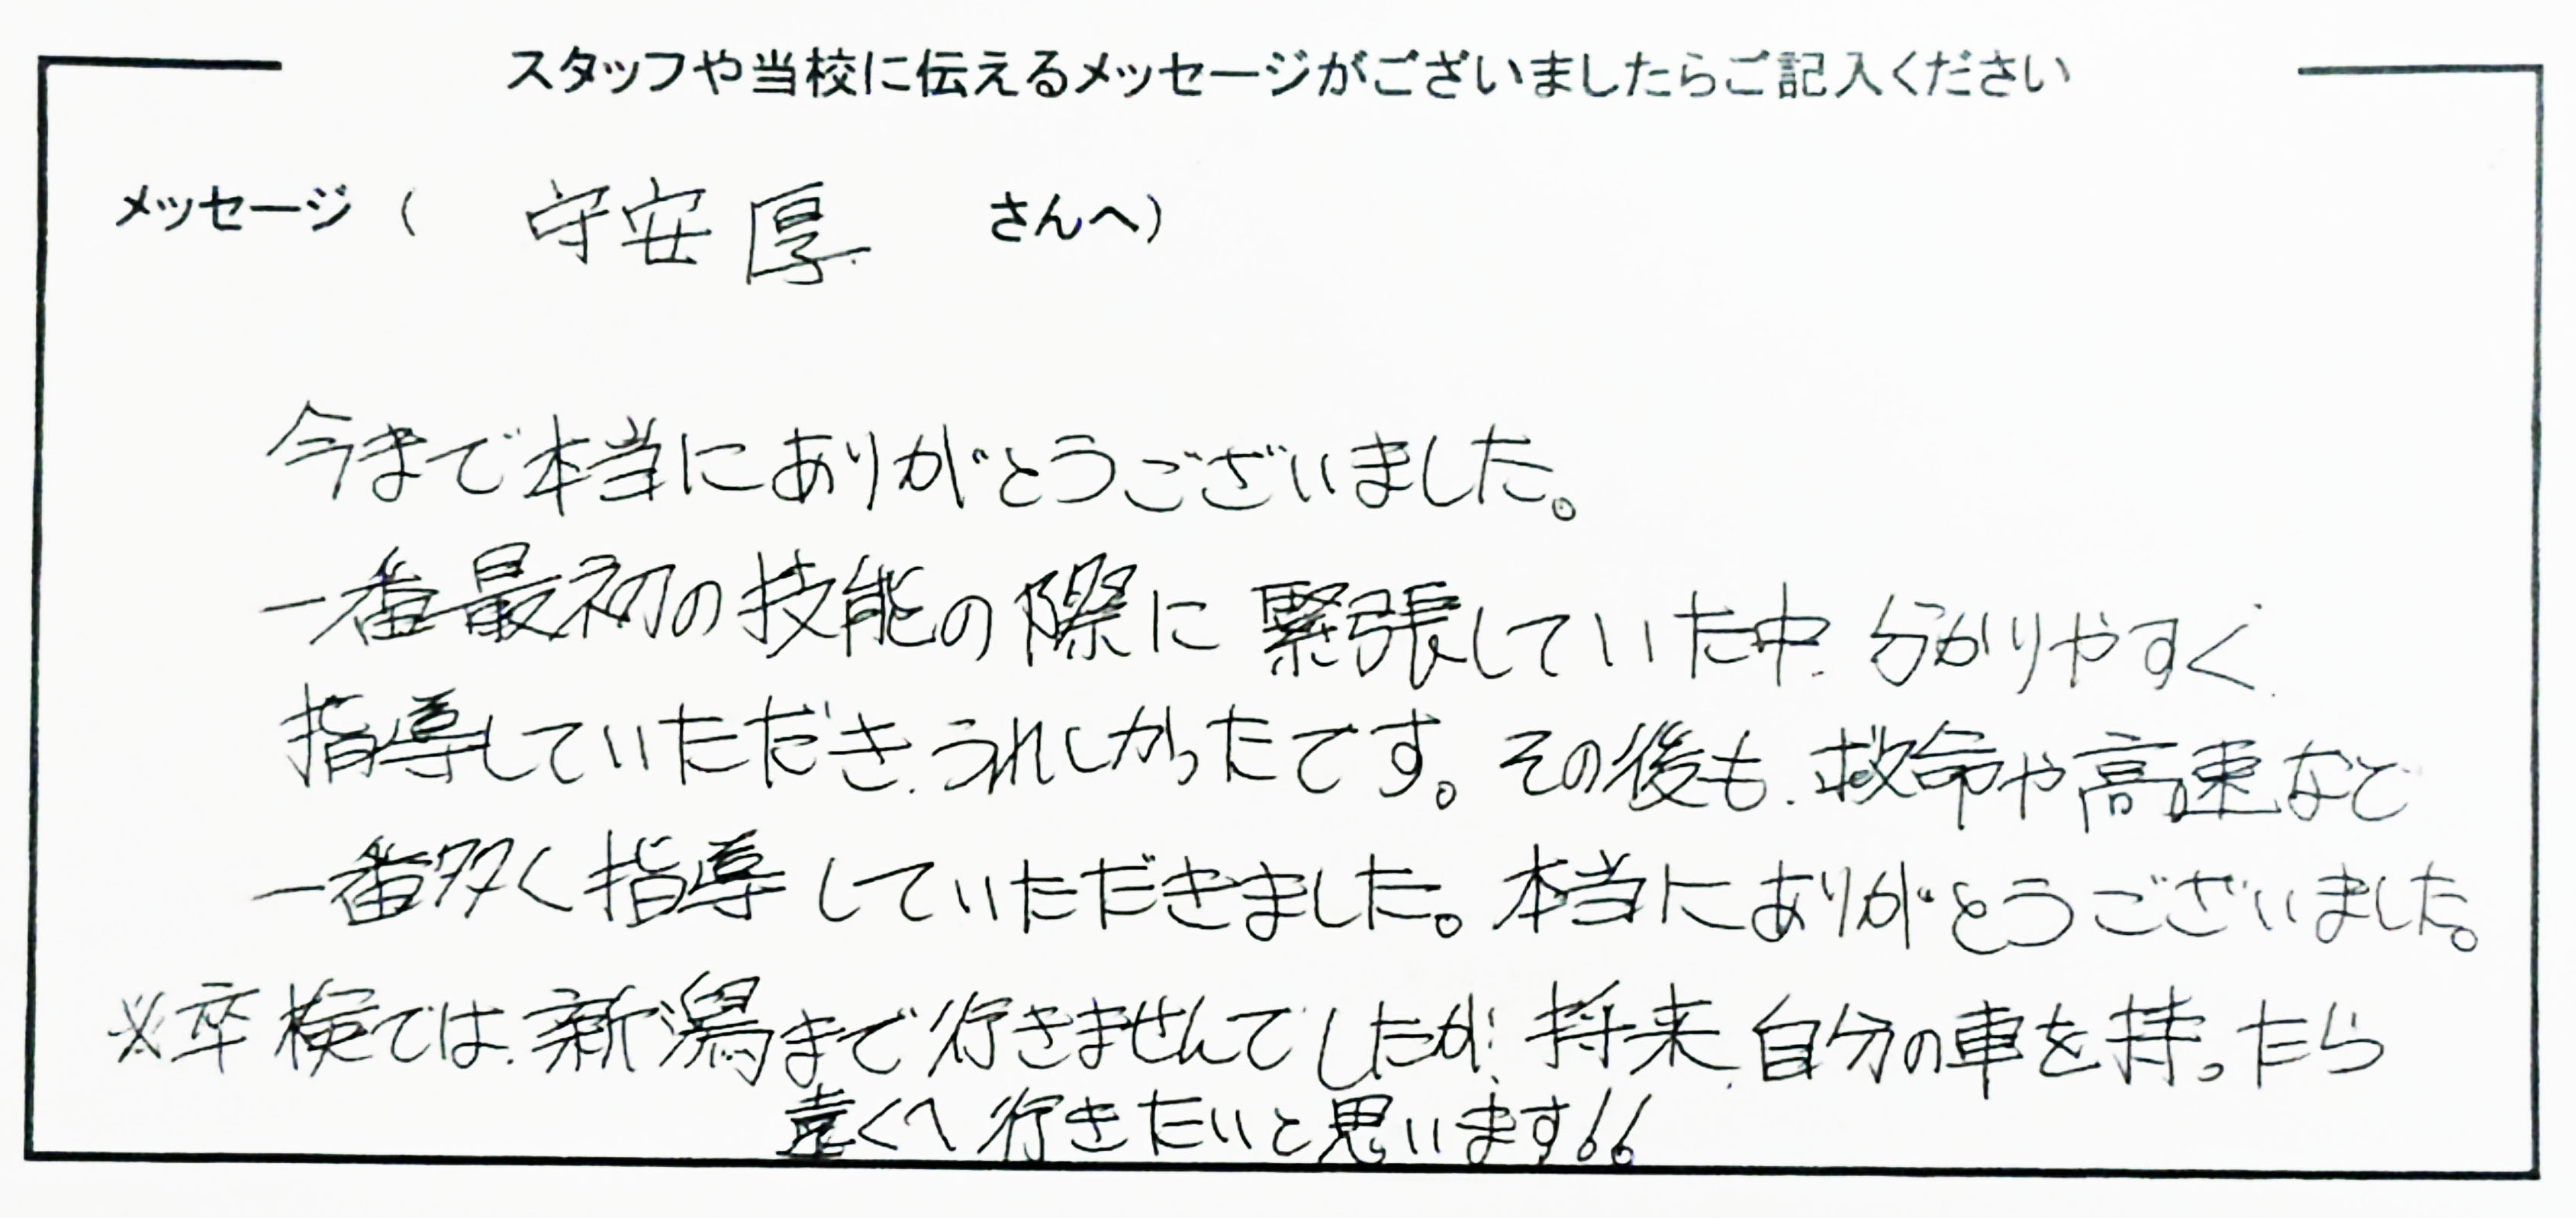 スタッフや当校に伝えるメッセージがございましたらご記入ください
メッセージ（ 守安 厚 さんへ）
今まで本当にありがとうございました。
一番最初の技能の際に緊張していた中、分かりやすく
指導していただき、うれしかったです。その後も、救命や高速など
一番多く指導していただきました。本当にありがとうございました。
※卒検では、新潟まで行きませんでしたが、将来、自分の車を持ったら
遠くへ行きたいと思います!!